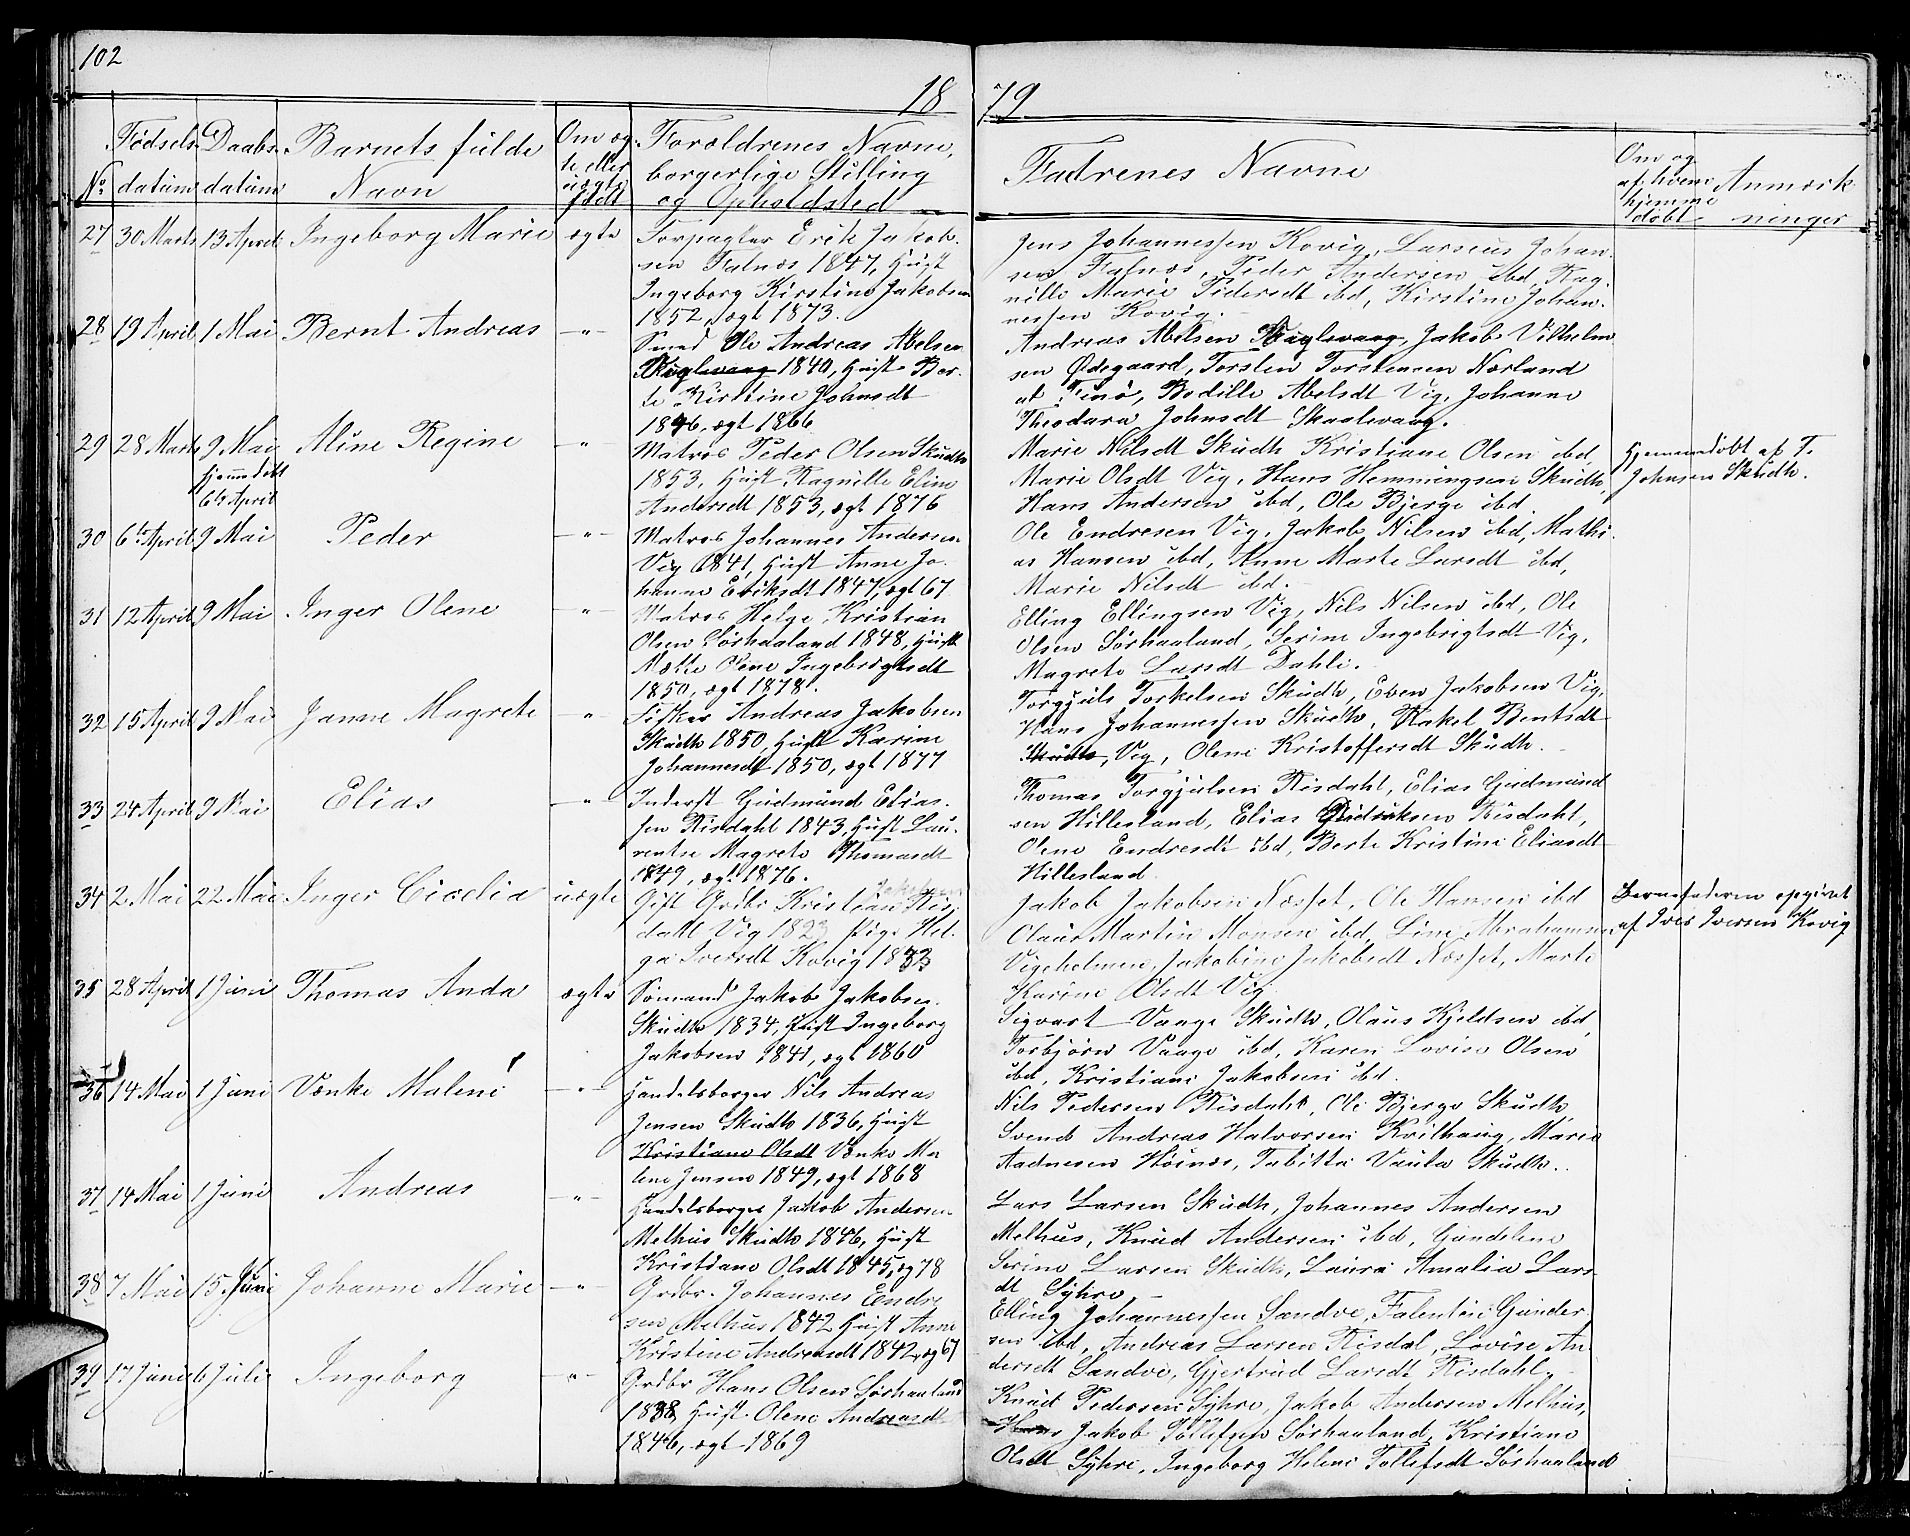 102
18 79
No. Fødsels datum Daabs datum Barnets fulde Navn Om æg te eller uægte født Foroldrenes Navne, borgerlige Stilling og Opholdsted Fadrenes Navne Om og af hvem hjemme døbt Anmærk ninger
27 30 Marts 13 April Ingeborg Marie ægte Forpagter Erik Jakob
sen Falnæs 1847, Hust
Ingeborg Kirstine Jakobsen
1852, ægt 1873.
Jens Johannessen Kovig, Larsius Johan
sen Falnæs, Peder Andersen ibd, Rag
nille Marie Pedersdt ibd, Kirstine Johan
nessen Kovig.
28 19 April 1 Mai Bernt Andreas -"- Smed Ole Andreas Abelsen
1840, Hust Ber
te Kirstine Johnsdt
1846, ægt 1866
Andreas Abelsen Jakob Vilhelm
sen Ødegaard, Torsten Torstensen Nørland
at Finø, Bodille Abelsdt Vig, Johanne
Theodara Johnsdt Skaslevaag.
29 28 Marts 9 Mai Aline Regine -"- Matros Peder Olsen Skudh
Hjemmedøbt
6te April
1853, Hust Ragnille Elina
Andersdt 1853, ægt 1876
Marie Nilsdt Skudh Kristiane Olsen ibd
Marie Olsdt Vig, Hans Hemmingsen Skudh,
Hans Andersen ibd, Ole Bjerge ibd.
Hjemmedøbt af T.
Johnsen Skudh.
30 6te April 9 Mai Peder -"- Matros Johannes Andersen
Vig 1841, Hust Anne Jo
hanne Eriksdt 1847, ægt 67
Ole Endresen Vig, Jakob Nilsen ibd, Mathi
as Hansen ibd, Anne Marte Larsdt ibd,
Marie Nilsdt ibd.
31 12 April 9 Mai Inger Olene -"- Matros Helge Kristian
Olsen Sørhaaland 1848, Hust
Mætte Olene Ingebrigtsdt
1850, ægt 1878.
Elling Ellingsen Vig, Nils Nilsen ibd, Ole
Olsen Sørhaaland, Serine Ingebrigtsdt Vig,
Magrete Larsdt Dahle.
32 15 April 9 Mai Janne Magrete -"- Fisker Andreas Jakobsen
Skudh 1850, Hust Karine
Johannesdt 1850, ægt 1877
Torgjuls Torkelsen Skudh, Even Jakobsen Vig,
Hans Johannessen Skudh, Rakel Bentsdt
Skudh, Vig, Olene Kristoffersdt Skudh.
33 24 April 9 Mai Elias -"- Inderst Gudmund Elias
sen Risdahl 1843, Hust Lau
rentse Magrete Thomasdt
1849, ægt 1876.
Thomas Torgjulsen Risdahl, Elias Gudmund
sen Hillesland, Elias Didriksen Risdahl,
Olene Endresdt ibd, Berte Kristine Eliasdt
Hillesland.
34 2 Mai 22 Mai Inger Cicelia uægte Gift Grdbr Kristian Jakobsen Ris
dahl Vig 1823 Pige Hel
ga Iversdt Kovig 1832
Jakob Jakobsen Næsset, Ole Hansen ibd
Olaus Martin Monsen ibd, Line Abrahamsen
Vigeholmen, Jakobine Jakobsdt Næsset, Marte
Karine Olsdt Vig
Barnefaderen opgivet
af Iver Iversen Kovig
35 28 April 1 Juni Thomas Anda ægte Sømand Jakob Jakobsen
Skudh 1834, Hust Ingeborg
Jakobsen 1841, ægt 1860
Sigvart Vaage Skudh, Olaus Kjeldsen ibd
Torbjørn Vaage ibd, Karen Lovise Olsen
ibd, Kristiane Jakobsen ibd.
36 14 Mai 1 Juni Vænke Malene -"- Handelsborger Nils Andreas
Jensen Skudh 1836, Hust
Kristiane Olsdt Vænke Ma
lene Jensen 1849, ægt 1868
Nils Pedersen Risdahl, Ole Bjerge Skudh,
Svend Andreas Halvorsen Kvilhaug, Marie
Aadnesen Høinæs, Tabitta Vaula Skudh.
37 14 Mai 1 Juni Andreas -"- Handelsborger Jakob Andersen
Melhus Skudh 1846, Hust
Kristiane Olsdt 1845, æg 78
Lars Larsen Skudh, Johannes Andersen
Melhus, Knud Andersen ibd, Gundelene
Serine Larsen Skudh, Laura Amalia Lars
dt Syhre.
38 7 Mai 15 Juni Johanne Marie -"- Grdbr. Johannes Endre
sen Melhus 1842 Hust Anne
Kristine Andreasdt 1842, æg 67
Elling Johannessen Sandve, Falentin Gunder
sen ibd, Andreas Larsen Risdal, Lovise An
dersdt Sandve, Gjertrud Larsdt Risdahl.
39 17 Juni 6 Juli Ingeborg -"- Grdbr Hans Olsen Sørhaaland
1838, Hust. Olene Andreasdt
1846, ægt 1869
Knud Pedersen Syhre, Jakob Andersen Melhus,
Hans Jakob Tollefsen Sørhaaland, Kristiane
Olsdt Syhre, Ingeborg Helene Tollefsdt Sørhaaland